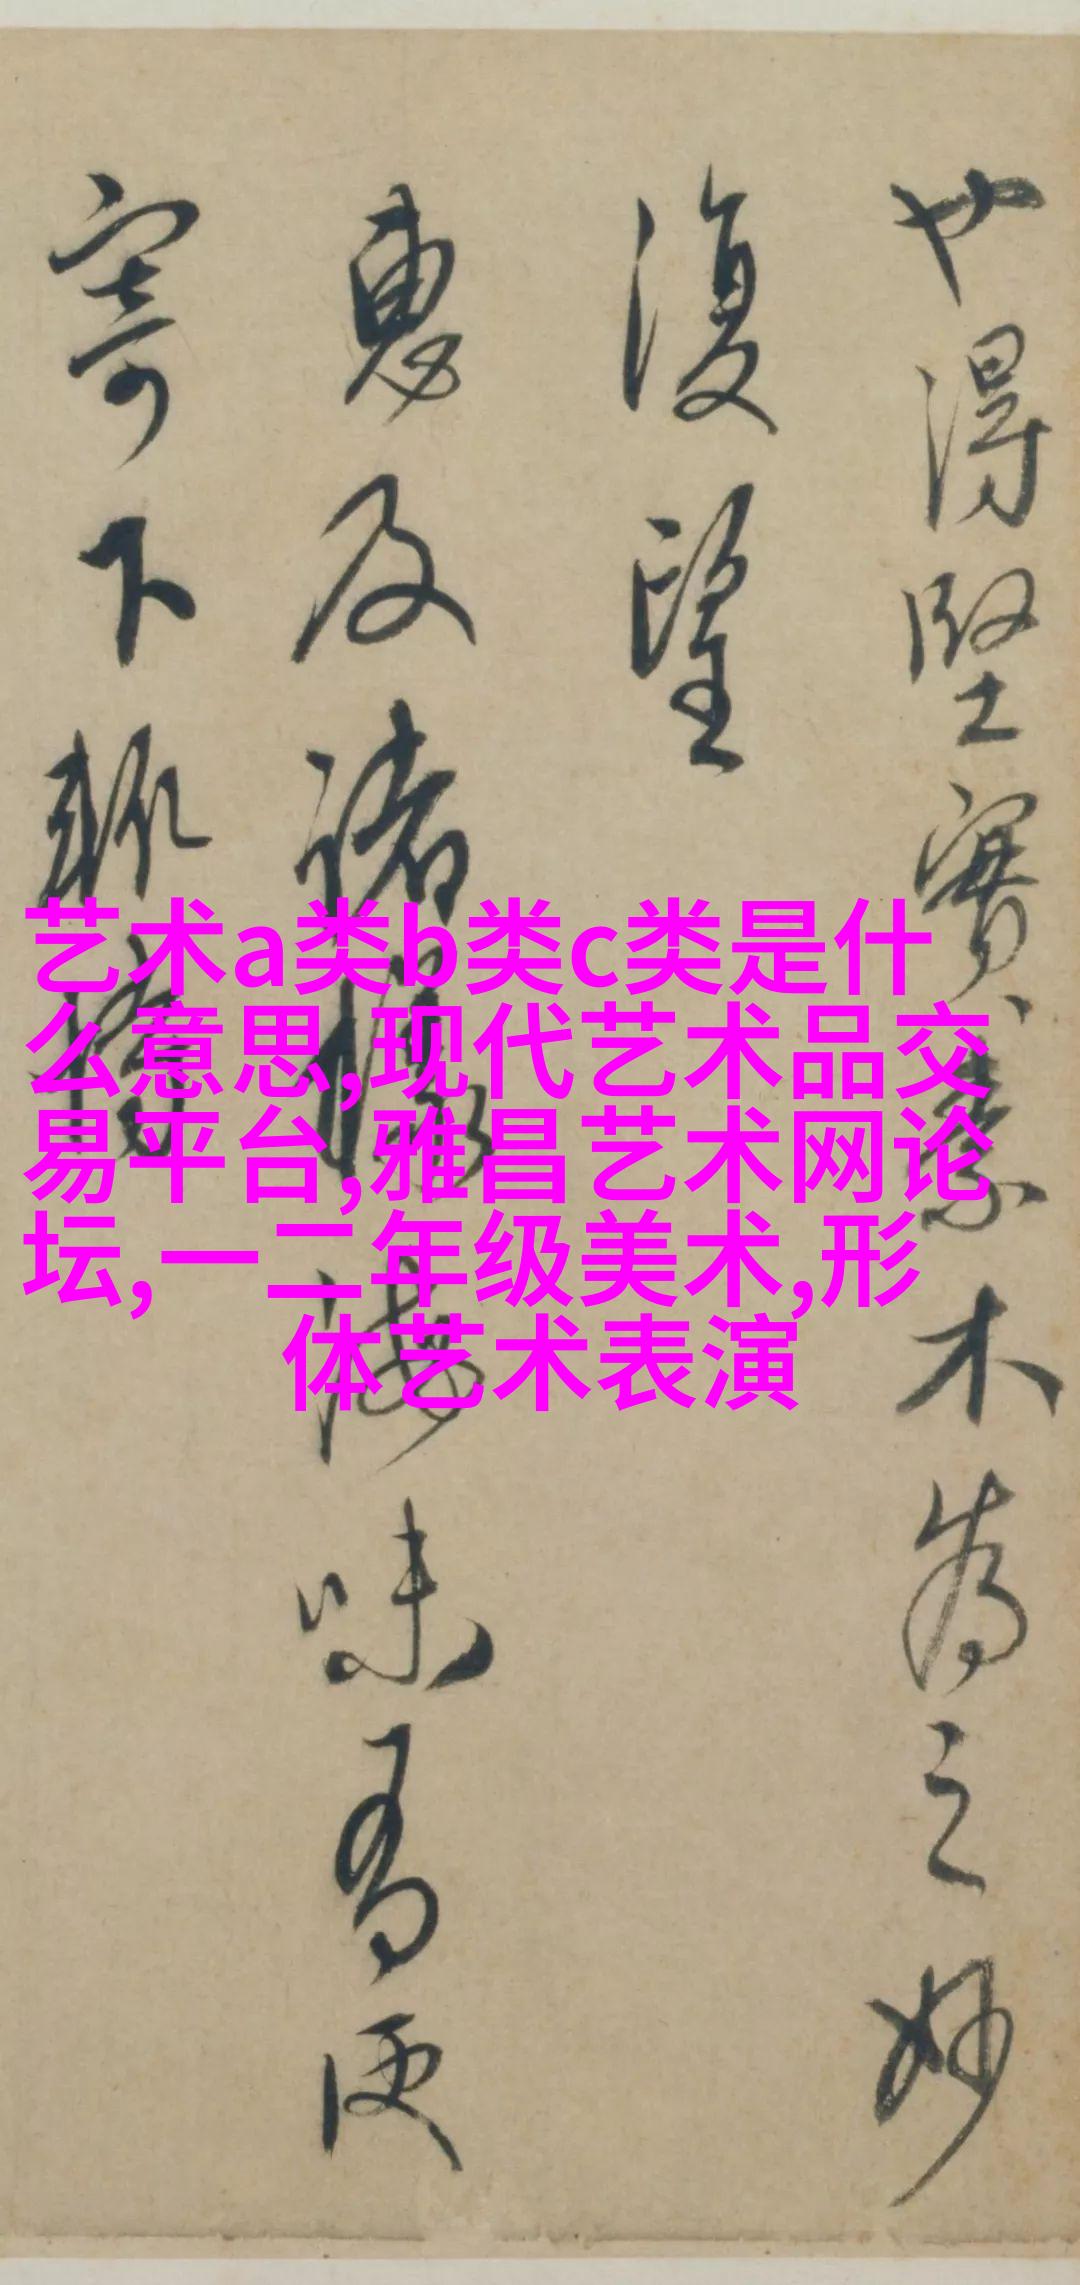 也得堅實素木為之妙
復望
惠及諸様海味為便
寄下輒
艺术a类b类c类是什
么意思,现代艺术品交
易平台,雅昌艺术网论
坛,一二年级美术,形
体艺术表演